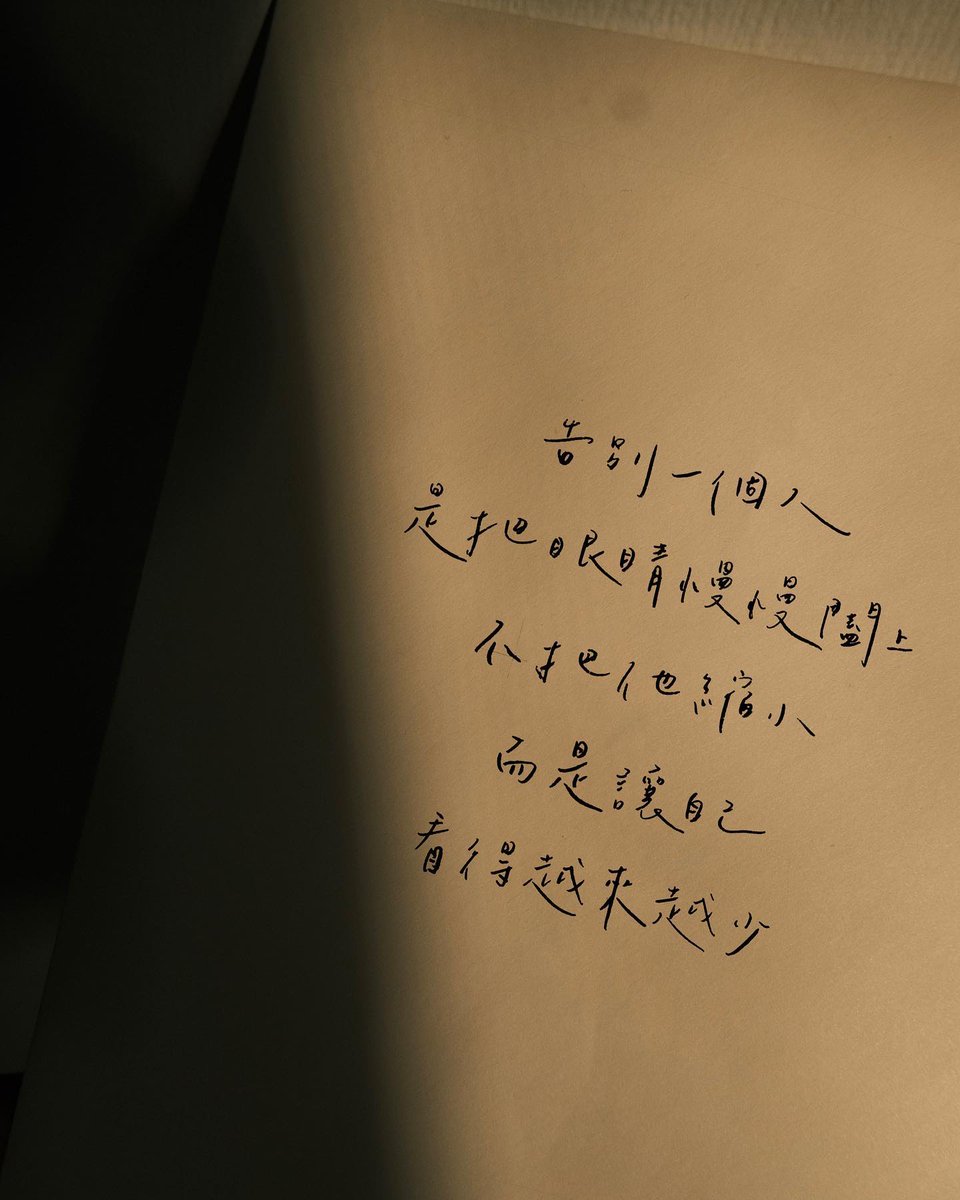 告別一個人
是把眼睛慢慢闔上
不把他縮小
而是讓自己
看得越來越少